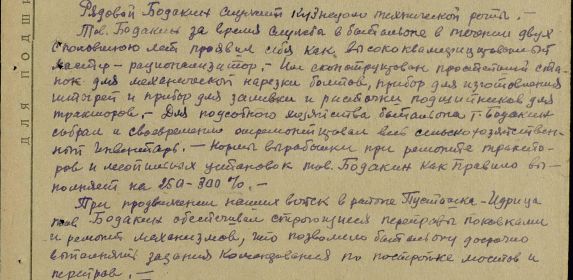 Рядовой Бодакин служит кузнецом технической роты. –
Тов. Бодакин за время службы в батальоне в течении двух
с половиною лет проявил себя как высококвалифицированный
мастер – рационализатор. – Им сконструирован простейший ста-
нок для механической нарезки болтов, прибор для изготовления
штагрет и прибор для заливки и расточки подшипников для
тракторов. – Для подсобного хозяйства батальона т. Бодакин
собрал и своевременно отремонтировал весь сельскохозяйствен-
ный инвентарь. – Нормы выработки при ремонте тракто-
ров и лесопильных установок тов. Бодакин как правило вы-
полняет на 250-300%. –
При продвижении наших войск в районе Пустошка – Идрица
тов. Бодакин обеспечивал строющиеся переправы поковками
и ремонт механизмов, что позволило батальону досрочно
выполнять задания командования по постройке мостов и
переправ. –
ДЛЯ ПОДШИ